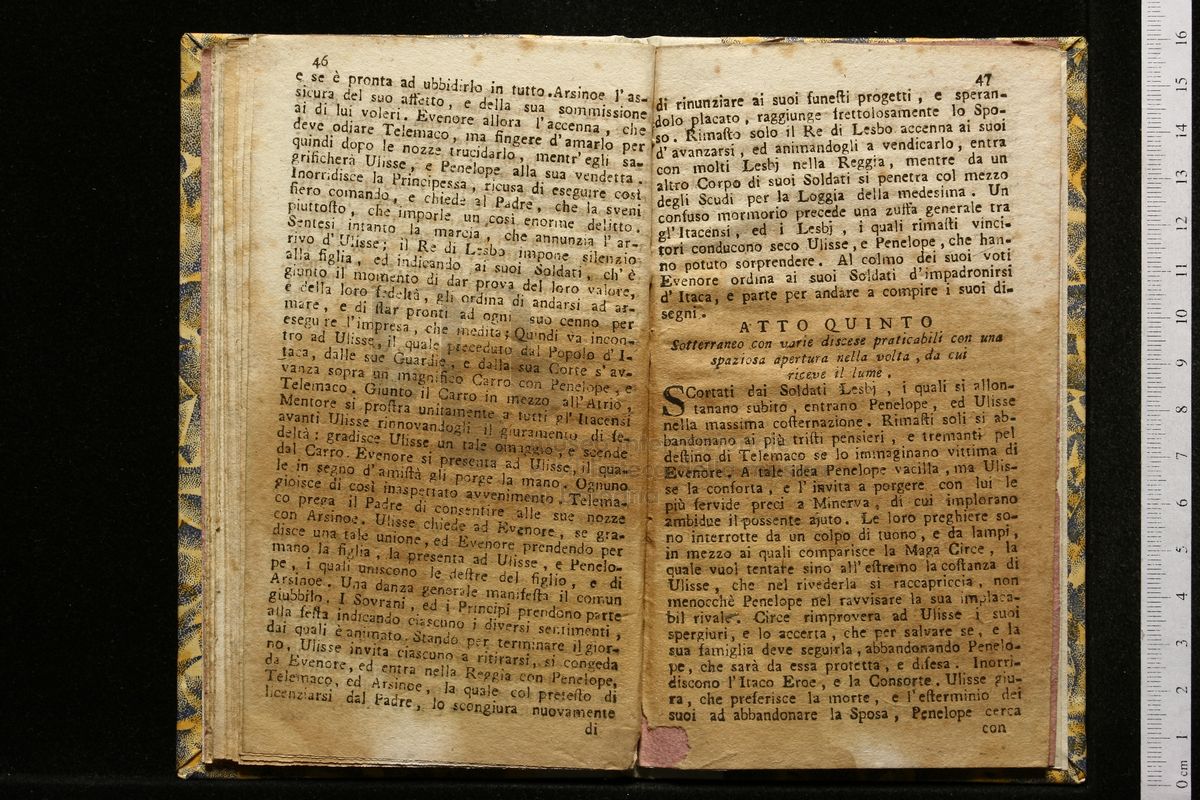 46
e se è pronta ad ubbidirlo in tutto. Arsinoe l'as-
sicura del suo affetto, e della sua sommissione
ai di lui voleri. Evenore allora l'accenna, che
deve odiare Telemaco, ma fingere d'amarlo per
quindi dopo le nozze trucidarlo, mentr'egli sa-
grificherà Ulisse, e Penelope alla sua vendetta.
Inorridisce la Principessa, ricusa di eseguire così
fiero comando, e chiede al Padre, che la sveni
piuttosto, che imporle un così enorme delitto.
Sentesi intanto la marcia, che annunzia l'ar-
rivo d'Ulisse; il Re di Lesbo impone silenzio
alla figlia, ed indicando ai suoi Soldati, ch'è
giunto il momento di dar prova del loro valore,
e della loro fedeltà, gli ordina di andarsi ad ar-
mare, e di star pronti ad ogni suo cenno per
eseguire l'impresa, che medita; Quindi va incon-
tro ad Ulisse, il quale preceduto dal Popolo d'I-
taca, dalle sue Guardie, e dalla sua Corte s'av-
vanza sopra un magnifico Carro con Penelope, e
Telemaco. Giunto il Carro in mezzo all'Atrio,
Mentore si prostra unitamente a tutti gl'Itacensi
avanti Ulisse rinnovandogli il giuramento di fe-
deltà: gradisce Ulisse un tale omaggio, e scende
dal Carro. Evenore si presenta ad Ulisse, il qua-
le in segno d'amistà gli porge la mano. Ognuno
gioisce di così inaspettato avvenimento. Telema-
co prega il Padre di consentire alle sue nozze
con Arsinoe. Ulisse chiede ad Evenore, se gra-
disce una tale unione, ed Evenore prendendo per
mano la figlia, la presenta ad Ulisse, e Penelo-
pe, i quali uniscono le destre del figlio, e di
Arsinoe. Una danza generale manifesta il comun
giubbilo. I Sovrani, ed i Principi prendono parte
alla festa indicando ciascuno i diversi sentimenti,
dai quali è animato. Stando per terminare il gior-
no, Ulisse invita ciascuno a ritirarsi, si congeda
da Evenore, ed entra nella Reggia con Penelope,
Telemaco, ed Arsinoe, la quale col pretesto di
licenziarsi dal Padre, lo scongiura nuovamente
di
47
di rinunziare ai suoi funesti progetti, e speran-
dolo placato, raggiunge frettolosamente lo Spo-
so. Rimasto solo il Re di Lesbo accenna ai suoi
d'avanzarsi, ed animandogli a vendicarlo, entra
con molti Lesbj nella Reggia, mentre da un
altro Corpo di suoi Soldati si penetra col mezzo
degli Scudi per la Loggia della medesima. Un
confuso mormorio precede una zuffa generale tra
gl'Itacensi, ed i Lesbj, i quali rimasti vinci-
tori conducono seco Ulisse, e Penelope, che han-
no potuto sorprendere. Al colmo dei suoi voti
Evenore ordina ai suoi Soldati d'impadronirsi
d'Itaca, e parte per andare a compire i suoi di-
segni.
ATTO QUINTO
Sotterraneo con varie discese praticabili con una
spaziosa apertura nella volta, da cui
riceve il lume.
SCortati dai Soldati Lesbj, i quali si allon-
tanano subito, entrano Penelope, ed Ulisse
nella massima costernazione. Rimasti soli si ab-
bandonano ai più tristi pensieri, e tremanti pel
destino di Telemaco se lo immaginano vittima di
Evenore. A tale idea Penelope vacilla, ma Ulis-
se la conforta, e l'invita a porgere con lui le
più fervide preci a Minerva, di cui implorano
ambidue il possente ajuto. Le loro preghiere so-
no interrotte da un colpo di tuono, e da lampi,
in mezzo ai quali comparisce la Maga Circe, la
quale vuol tentare sino all'estremo la costanza di
Ulisse, che nel rivederla si raccapriccia, non
menocchè Penelope nel ravvisare la sua implaca-
bil rivale. Circe rimprovera ad Ulisse i suoi
spergiuri, e lo accerta, che per salvare se, e la
sua famiglia deve seguirla, abbandonando Penelo-
pe, che sarà da essa protetta, e difesa. Inorri-
discono l'Itaco Eroe, e la Consorte. Ulisse giu-
ra, che preferisce la morte, e l'esterminio dei
suoi ad abbandonare la Sposa, Penelope cerca
con
0 cm 1 2 3 4 5 6 7 8 9 10 11 12 13 14 15 16